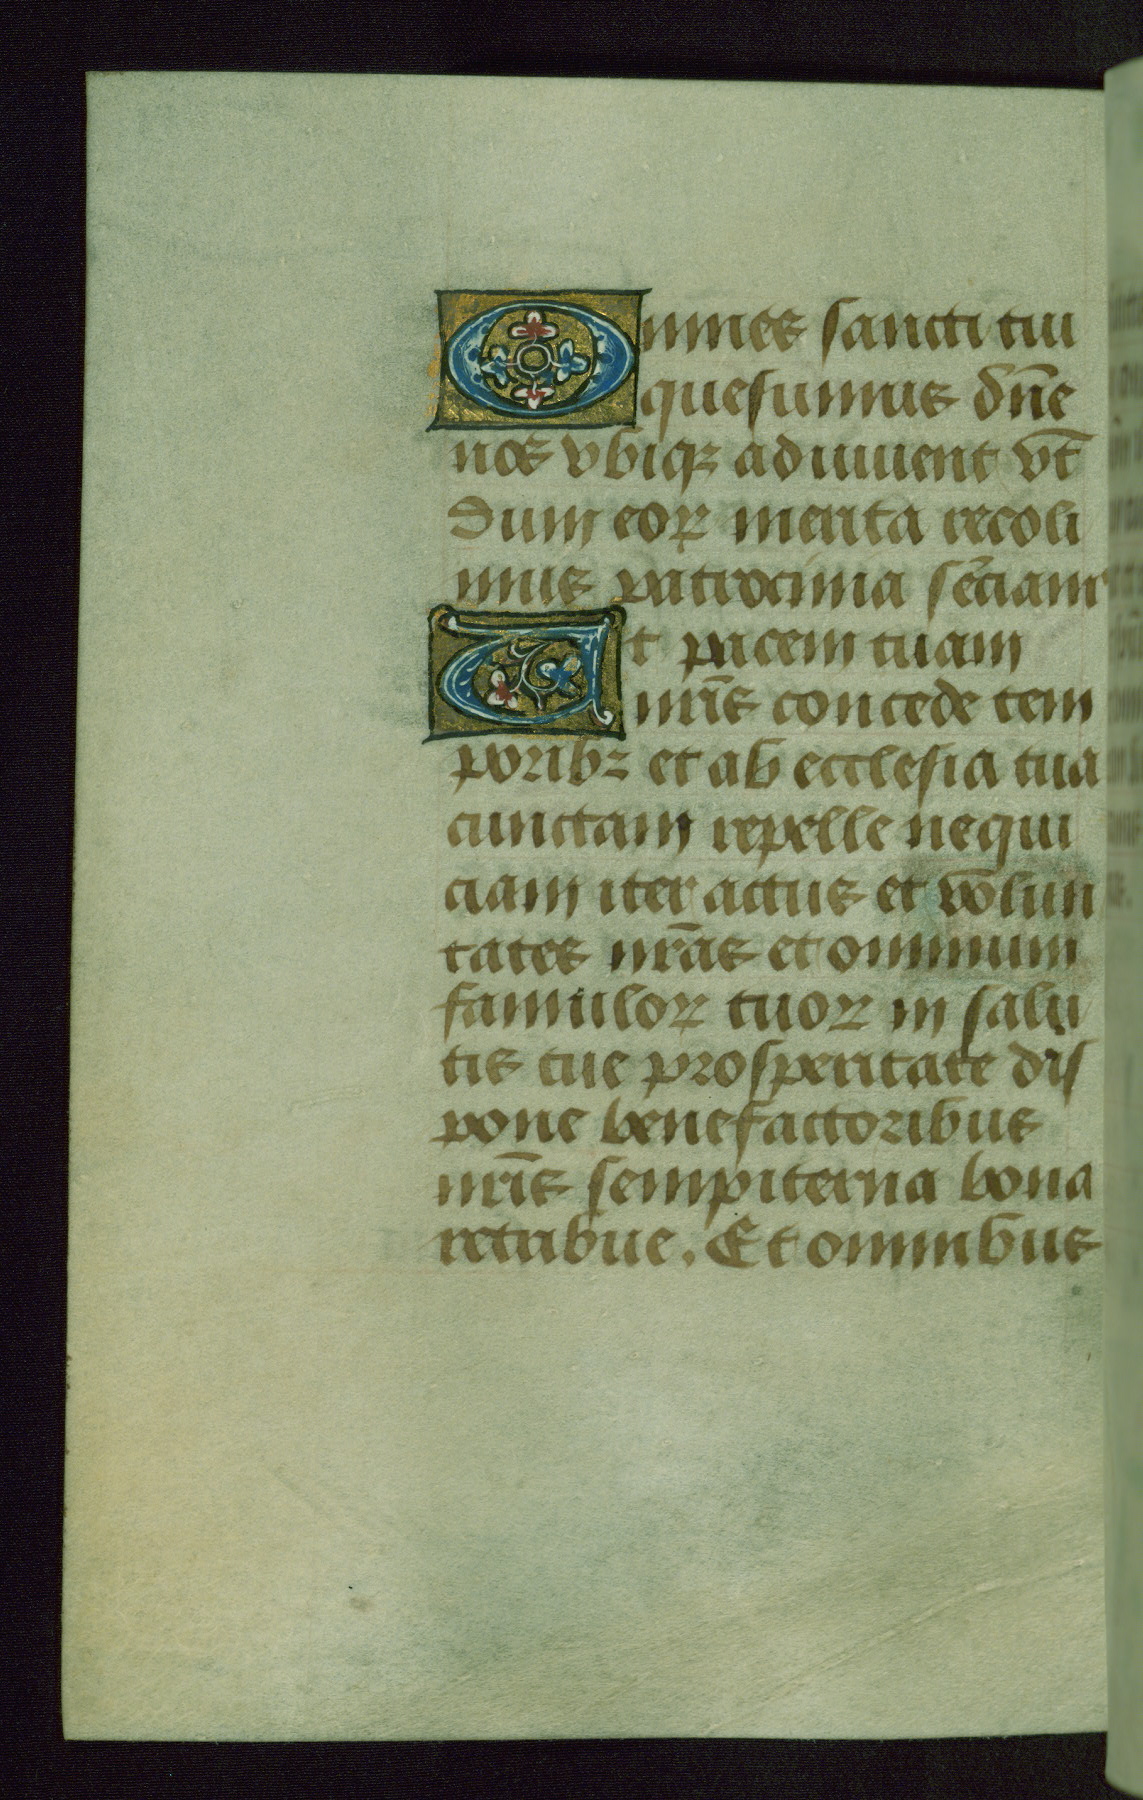 Omnes sancti tui
quesumus dn̄e
nos vbiqꝫ adiuuent vt̄
dum eoꝝ merita recoli
mus patrocinia sēciam
Et pacem tuam
nr̄is concede tem
poribꝫ et ab ecclesia tua
cunctam repelle nequi
ciam iter actus et volun
tates nr̄as et omnium
famuloꝝ tuoꝝ in salu
tis tue prosperitate dis
pone benefactoribus
nr̄is sempiterna bona
retribue. Et omnibus